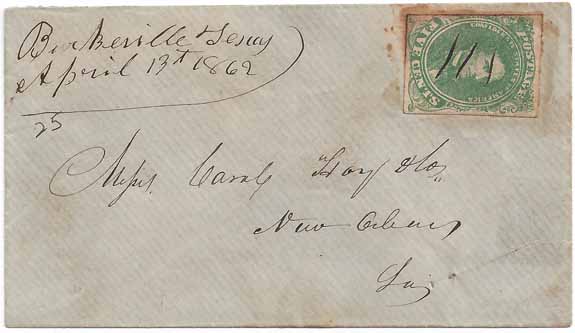 Burkeville Texas
April 13th 1862
25
CONFEDERATE STATES
AMERICA
FIVE CENTS
POSTAGE
Messrs. Hoy & Co.
New Orleans
La